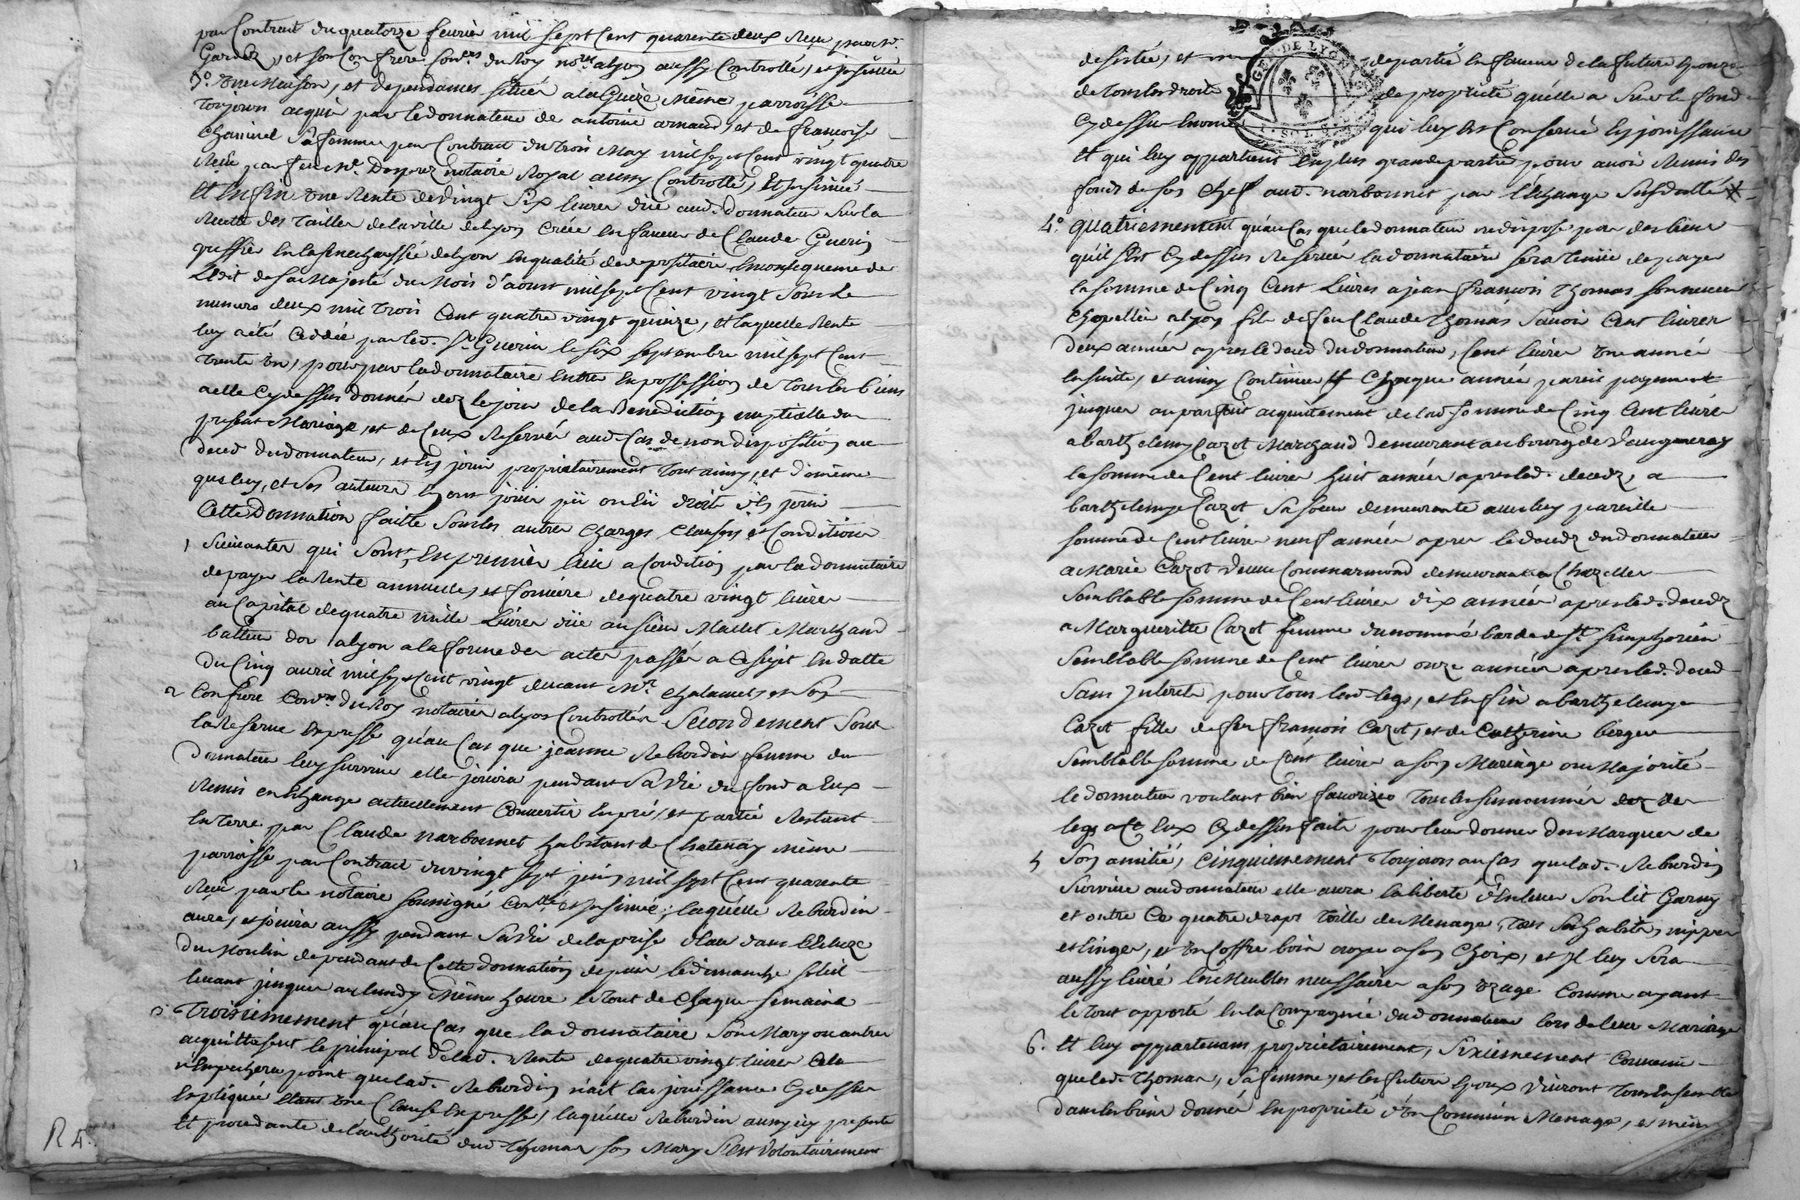 par Contract du quatorze fevrier mil sept Cent quarante deux Reçu par Mr.
et son Confrere Coners. du Roy nores. a Lyon aussy Controllé, et insinüé
5°. une Maison, et dependances situéé a la Guize même parroisse
Toujours acquise par le donnateur de antoine arnaud, et de françoise
Chaninel sa femme par Contract du trois May mil sept Cent vingt quatre
Reçu par feu Mr. notaire Royal aussy Controllé, et insinüé
Et enfin une Rente de vingt six livres düe aud. donnateur sur la
Recette des Tailles de la ville de Lyon Créée en faveur de Claude Guerin
greffier en la senechaussée de Lyon en qualité de depositaire en consequence de
L'edit de sa Majesté du Mois d'aoust mil sept Cent vingt sous le
numero deux mil trois Cent quatre vingt quinze, et laquelle Rente
luy a été Ceddée par led. Sr. Guerin le six septembre mil sept Cent
Trente un, pour par la donnataire entrer en possession de tous les biens
a elle Cy dessus donnés dez le jour de la Benediction nuptialle du
present Mariage, et de Ceux Reservés aud. Cas de non disposition au
deces du donnateur, et en jouir proprietairement tout ainsy, et de même
que luy, et ses auteurs en ont joüi pü ou dü droit d'y joüir
Cette Donnation faitte sous les autres Charges Clauses et Conditions
1 suivantes qui sont, En premier lieu a Condition par la donnataire
de payer la Rente annuelle, et fonciere de quatre vingt livres
au Capital de quatre mille Livres düe au sieur Mallet Marchand
batteur d'or a Lyon a la forme des actes passés a Ce sujet en datte
du Cinq avril mil sept Cent vingt devant Mr. Chalamet, et son
2 Confrere Coners. du Roy notaires a Lyon Controllés Secondement sous
la Reserve Expresse qu'au Cas que jeanne Rebordin femme du
donnateur luy survive elle jouira pendant sa vie du fond a eux
Remis en Echange actuellement Converti en pré, et partie Restant
en terre par Claude Narbonnet habitant de Chatenay même
parroisse par Contract du vingt sept juin mil sept Cent quarante
Reçu par le notaire soussigné Conllé. et insinué; laquelle Rebordin
aura, et jouira aussy pendant sa vie de la prise d'eau dans l'Ecluze
du Moulin dependant de Cette donnation depuis le dimanche soleil
levant jusques au lundy même heure le tout de Chaque semaine
3 Troisiemement qu'au Cas que la donnataire son Mary ou autres
acquittassent le principal de lad. Rente de quatre vingt livres Cela
n'Empechera point que lad. Rebordin n'ait la jouissance Cy dessus
Expliquée etant une Clause Expresse, laquelle Rebordin aussy icy presente
Et procedante de l'authorité dud. Thomas son Mary s'est volontairement
R 4.
desistée, et departie en faveur de la future Epouze
de tous les droits de proprieté qu'elle a sur le fond
Cy dessus Enoncé qui luy est Conservé en jouissance
Et qui luy appartient en plus grande partie pour avoir Remis des
fonds de son Chef aud. Narbonnet par l'Echange susdatté
4°. quatriemement qu'au Cas que le donnateur ne dispose pas des biens
qu'il s'est Cy dessus Reservés la donnataire sera tenüe de payer
la somme de Cinq Cent Livres a jean françois Thomas son neveu
Chapellier a Lyon fils de feu Claude Thomas savoir Cent livres
deux années apres le deces du donnateur, Cent livres une année
ensuite, et ainsy Continuer Chaque année pareil payement
jusques au parfait acquittement de lad. somme de Cinq Cent livres
a barthelemy Cazot Marchand demeurant au bourg de Vaugneray
la somme de Cent livres huit années apres led. decedz, a
barthelemye Cazot sa soeur demeurante avec luy pareille
somme de Cent livres neuf années apres le decedz du donnateur
a Marie Cazot veuve Commarmond demeurante a Chazelles
semblable somme de Cent livres dix années apres led. decedz
a Margueritte Cazot femme du nommé bardes de St. simphorien
semblable somme de Cent livres onze années apres led. deced
sans Interets pour tous lesd. legs, et enfin a barthelemye
Cazot fille de feu françois Cazot, et de Catherine berger
semblable somme de Cent livres a son Mariage ou Majorité
le donnateur voulant bien favorizer tous les surnommés dez des
legs a Ceux Cy dessus faits pour leur donner des Marques de
5 son amitié, Cinquiemement Toujours au Cas que lad. Rebordin
survive au donnateur elle aura la liberté d'Enlever son lit Garny
et outre Ce quatre draps toille de Menage, Tous ses habits, nippes
et linges, et un Coffre bois a son Choix, et Il luy sera
aussy livré les Meubles necessaires a son uzage Comme ayant
le tout apporté en la Compagnie du donnateur lors de leur Mariage
6. Et luy appartenans proprietairement, Sixiemement Convenu
que led. Thomas, sa femme, et les futurs Epoux vivront tous Ensemble
dans les biens donnés en proprieté d'un Commun Menage, et